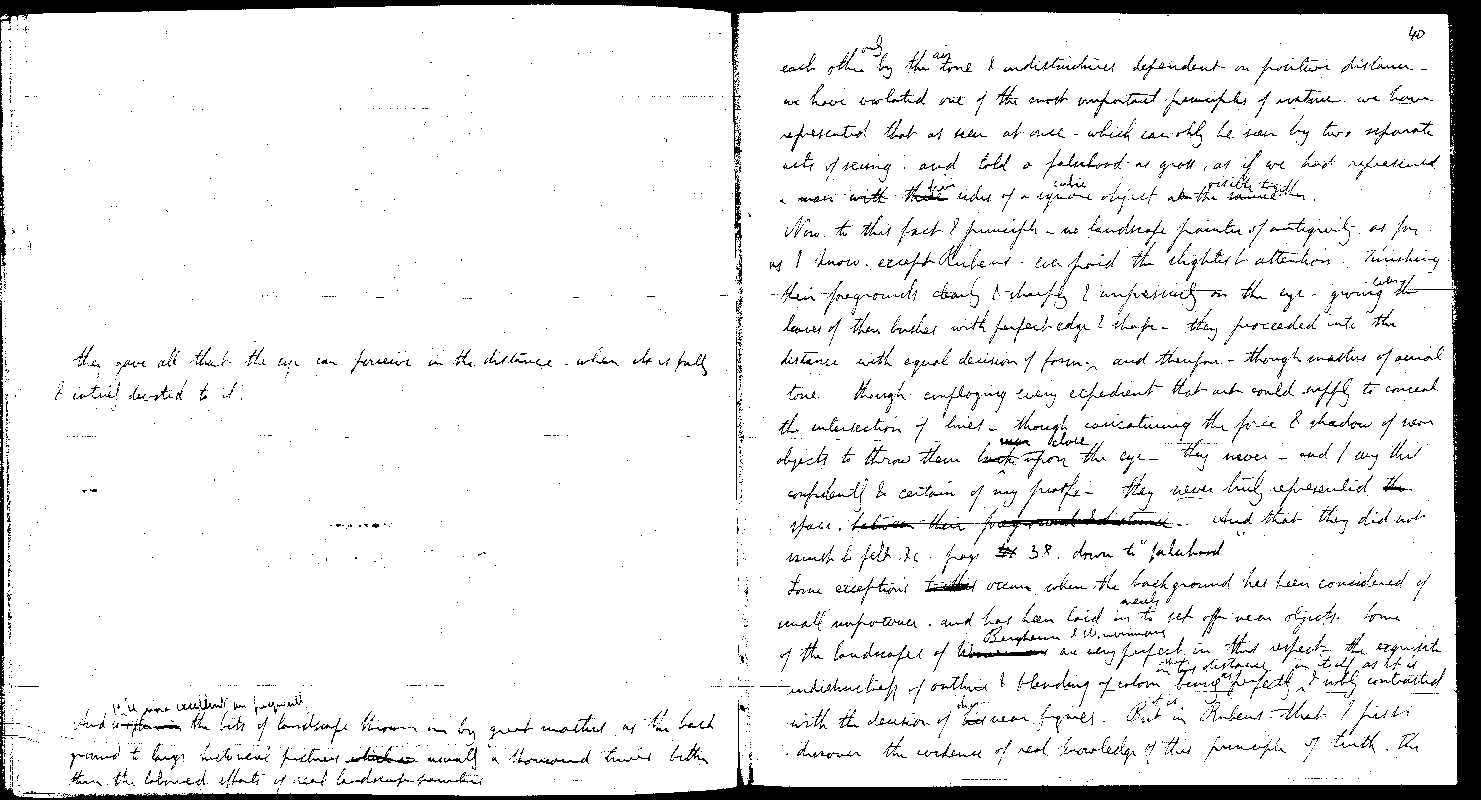 they gave all that the eye can perceive in the distance - when it is fully
& entirely devoted to it.
it is more excellent on
And the bits of landscape thrown in by great masters as the back
ground to large historical pictures which are usually a thousand times better
than the laboured efforts of real landscape painters
40
only air
each other by the tone & indistinctness dependent on positive distance -
we have violated one of the most important principles of nature. we have
represented that as seen at once - which can only be seen by two separate
acts of seeing. and told a falsehood as gross, as if we had represented
four cubic visible together
a man with sides of a square object at the same
Now to this fact & principle - no landscape painter of antiquity, as far
as I know. except Rubens - ever paid the slightest attention. Finishing
every
their foregrounds clearly & sharply & impressively on the eye - giving the
leaves of their bushes with perfect edge & shape - they proceeded into the
distance with equal decision of form, and therefore - though masters of aerial
tone though employing every expedient that art could supply to conceal
the intersection of lines - though caricaturing the force & shadow of near
near close
objects to throw them upon the eye - they never - and I say this
confidently & certain of my proofs - they never truly represented the
space. between their foreground & distance - And that they did not
must be felt &c. page 38. down to "falsehood"
Some exceptions occur when the background has been considered of
merely
small importance. and has been laid in to set off near objects. Some
Berghem &
of the landscapes of are very perfect in this respect - the exquisite
distance in itself as it is
indistinctness of outline & blending of colour being perfectly & nobly contrasted
with the decision of the near figures. But it is in Rubens - that I first
discover the evidence of real knowledge of this principle of truth. The